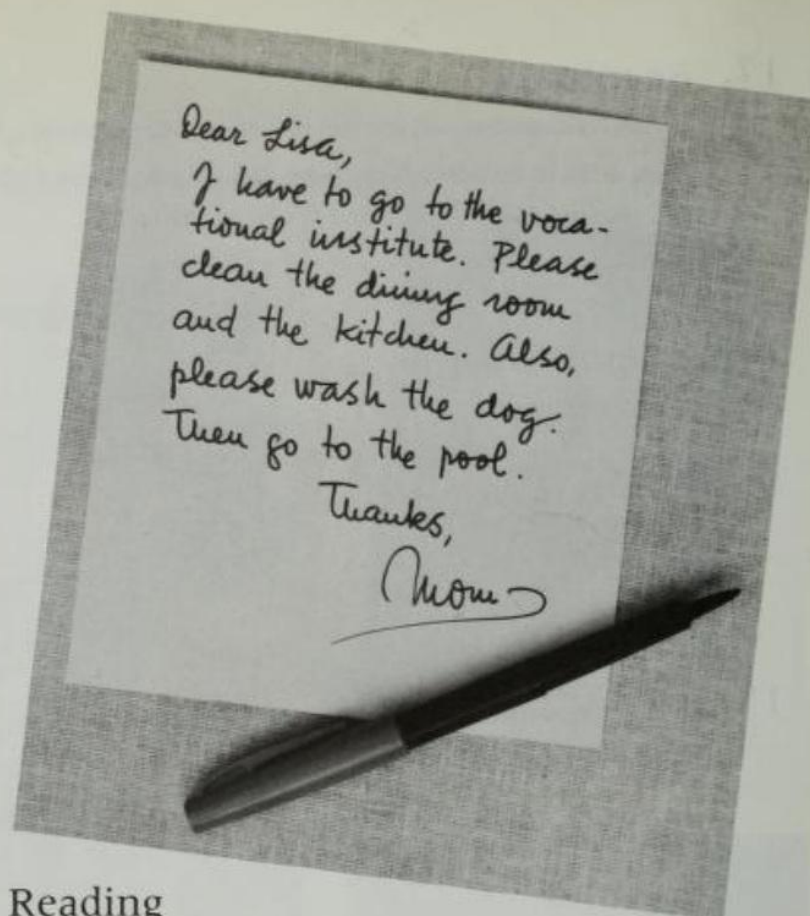 Dear Lisa,
I have to go to the voca-
tional institute. Please
clean the dining room
and the kitchen. Also,
please wash the dog.
Then go to the pool.
Thanks,
Mom
Reading